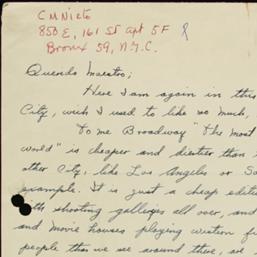 C M Nieto
850 E, 161 St apt 5F
Bronx 59, N.Y.C.
Querido Maestro;
Here I am again in this
City, wich I used to like so much,
To me Broadway "The most
world" is cheaper and diertier than
other City, like Los Angeles or Sa
example. It is just a cheap editi
with shooting galleries all over, and
and movie houses playing western f
people that we see around there, are